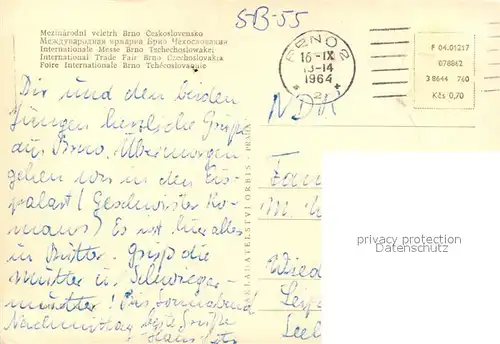 S-B-55
Mezinárodní veletrh Brno Československo
Международная ярмарка Брно Чехословакия
Internationale Messe Brno Tschechoslowakei
International Trade Fair Brno Czechoslovakia
Foire Internationale Brno Tchécoslovaquie
BRNO 2
16 -IX
13-14
1964
F 04.01217
078862
3 8644 760
Kčs 0,70
Dir und den beiden
Jungen herzliche Grüße
aus Brno. Übermorgen
gehen wir in den Eis-
palast (Geschwister Ro-
manows) Es ist hier alles
in Butter. Grüß die
Mutter u. Schwieger-
mutter! Bis Sonnabend
Nachmittag beste Grüße
NAKLADATELSTVÍ ORBIS - PRAHA
privacy protection
www.oldthing.de